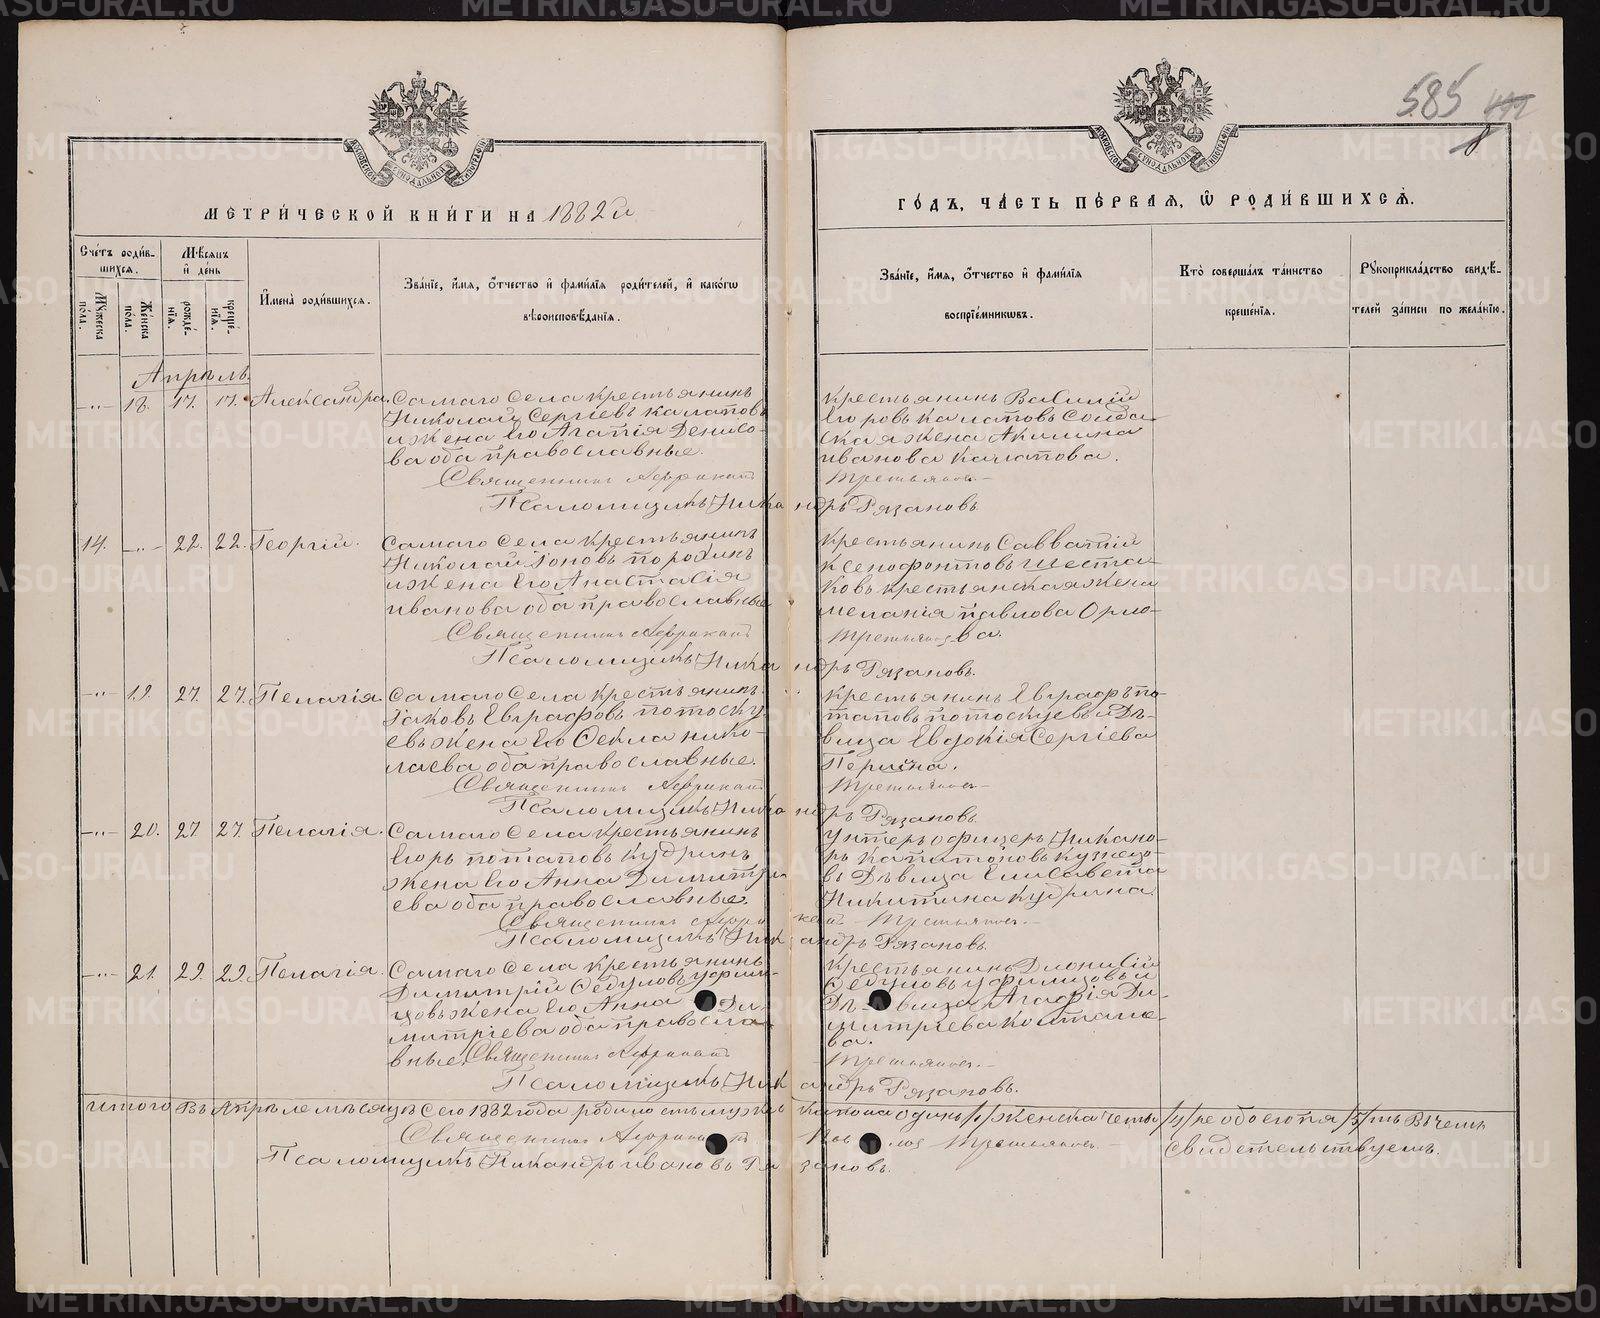 585
МЕТРИ́ЧЕСКОЙ КНИ́ГИ НА 1882й
ГО́ДЪ, ЧА́СТЬ ПЕ́РВАЯ, Ѡ РОДИ́ВШИХСЯ.
Сче́тъ роди́в-
шихся.
Мꙋ́жеска по́ла.
Же́нска по́ла.
Мѣ́сяцъ
и҆ де́нь
рожде́-
нїя.
креще́-
нїя.
И҆мена̀ роди́вшихся.
Зва́нїе, и҆́мя, ѻ҆́тчество и҆ фами́лїя роди́телей, и҆ како́гѡ
вѣроисповѣ́данїя.
Зва́нїе, и҆́мя, ѻ҆́тчество и҆ фами́лїя
воспрїе́мникѡвъ.
Кто̀ соверша́лъ та́инство
креще́нїя.
Рꙋкоприкла́дство свидѣ́-
телей за́писи по жела́нїю.
Апрѣль.
-"- 18. 17. 17. Александра. Самаго Села крестьянинъ
Николай Сергіевъ Калаповъ
и жена его Агапія Денисо-
ва оба православные.
Священникъ Африканъ
Псаломщикъ Ника
крестьянинъ Василій
Егоровъ Калаповъ Солда
ская жена Акилина
иванова Калапова.
Третьяков-
ндръ Рязановъ
14. -"- 22. 22. Георгій. Самаго Села крестьянинъ
Николай Іоновъ породинъ
и жена его Анастасія
иванова оба православные
Священникъ Африканъ
Псаломщикъ Ника
крестьянинъ Савватій
ксенофонтовъ шеста
ковъ крестьянская жена
мелания павлова Орло-
Третьяков ва.
ндръ Рязановъ.
-"- 19. 27. 27. Пелагія. Самаго Села крестьянинъ
Іаковъ Евграфовъ потоску
евъ жена его Ѳекла нико-
лаева оба православные.
Священникъ Африканъ
Псаломщикъ Ника
крестьянинъ Евграфъ по-
таповъ потоскуевъ и Дѣ-
вица Евдокія Сергіева
Перина.
Третьяков-
ндръ Рязановъ
-"- 20. 27 27. Пелагія. Самаго Села крестьянинъ
Егоръ потаповъ Кудринъ
жена его Анна Димитрі
ева оба православные.
Священникъ Африка
Псаломщикъ Ник
Унтеръ офицеръ Никано-
ръ капитоновъ кузнецо-
въ Дѣвица Елисавета
Никитина кудрина
канъ Третьяков.-
андръ Рязановъ
-"- 21. 29. 29. Пелагія. Самаго Села крестьянинъ
Димитрій Ѳедуловъ уфим-
цовъ жена его Анна Ди-
митріева оба правосла-
вные. Священникъ Африканъ
Псаломщикъ Ник
крестьянинъ Діонисій
Ѳедуловъ уфимцовъ и
Дѣвица Агафія Ди-
митріева
ва.
Третьяков.-
андръ Рязановъ.
Итого въ Апрѣле мѣсяцѣ сего 1882 года родилось мужес
капола одинъ /1/ женска четы /4/ ре обоего пя /5/ ть Въ чемъ
Священникъ Африканъ
Третьяков-
Свидетельствуемъ.
Псаломщикъ Никандръ ивановъ Ря
зановъ.